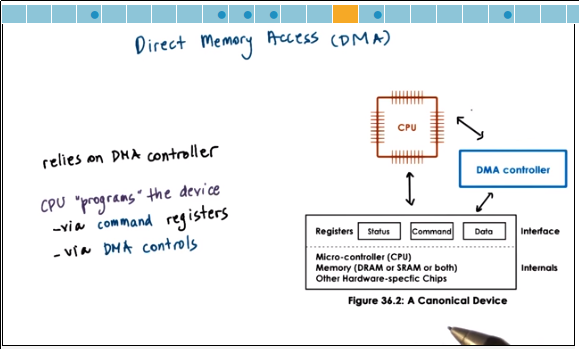 Direct Memory Access (DMA)
relies on DMA controller
CPU "programs" the device
- via command registers
- via DMA controls
CPU
DMA controller
Registers Status Command Data Interface
Micro-controller (CPU)
Memory (DRAM or SRAM or both) Internals
Other Hardware-specfic Chips
Figure 36.2: A Canonical Device